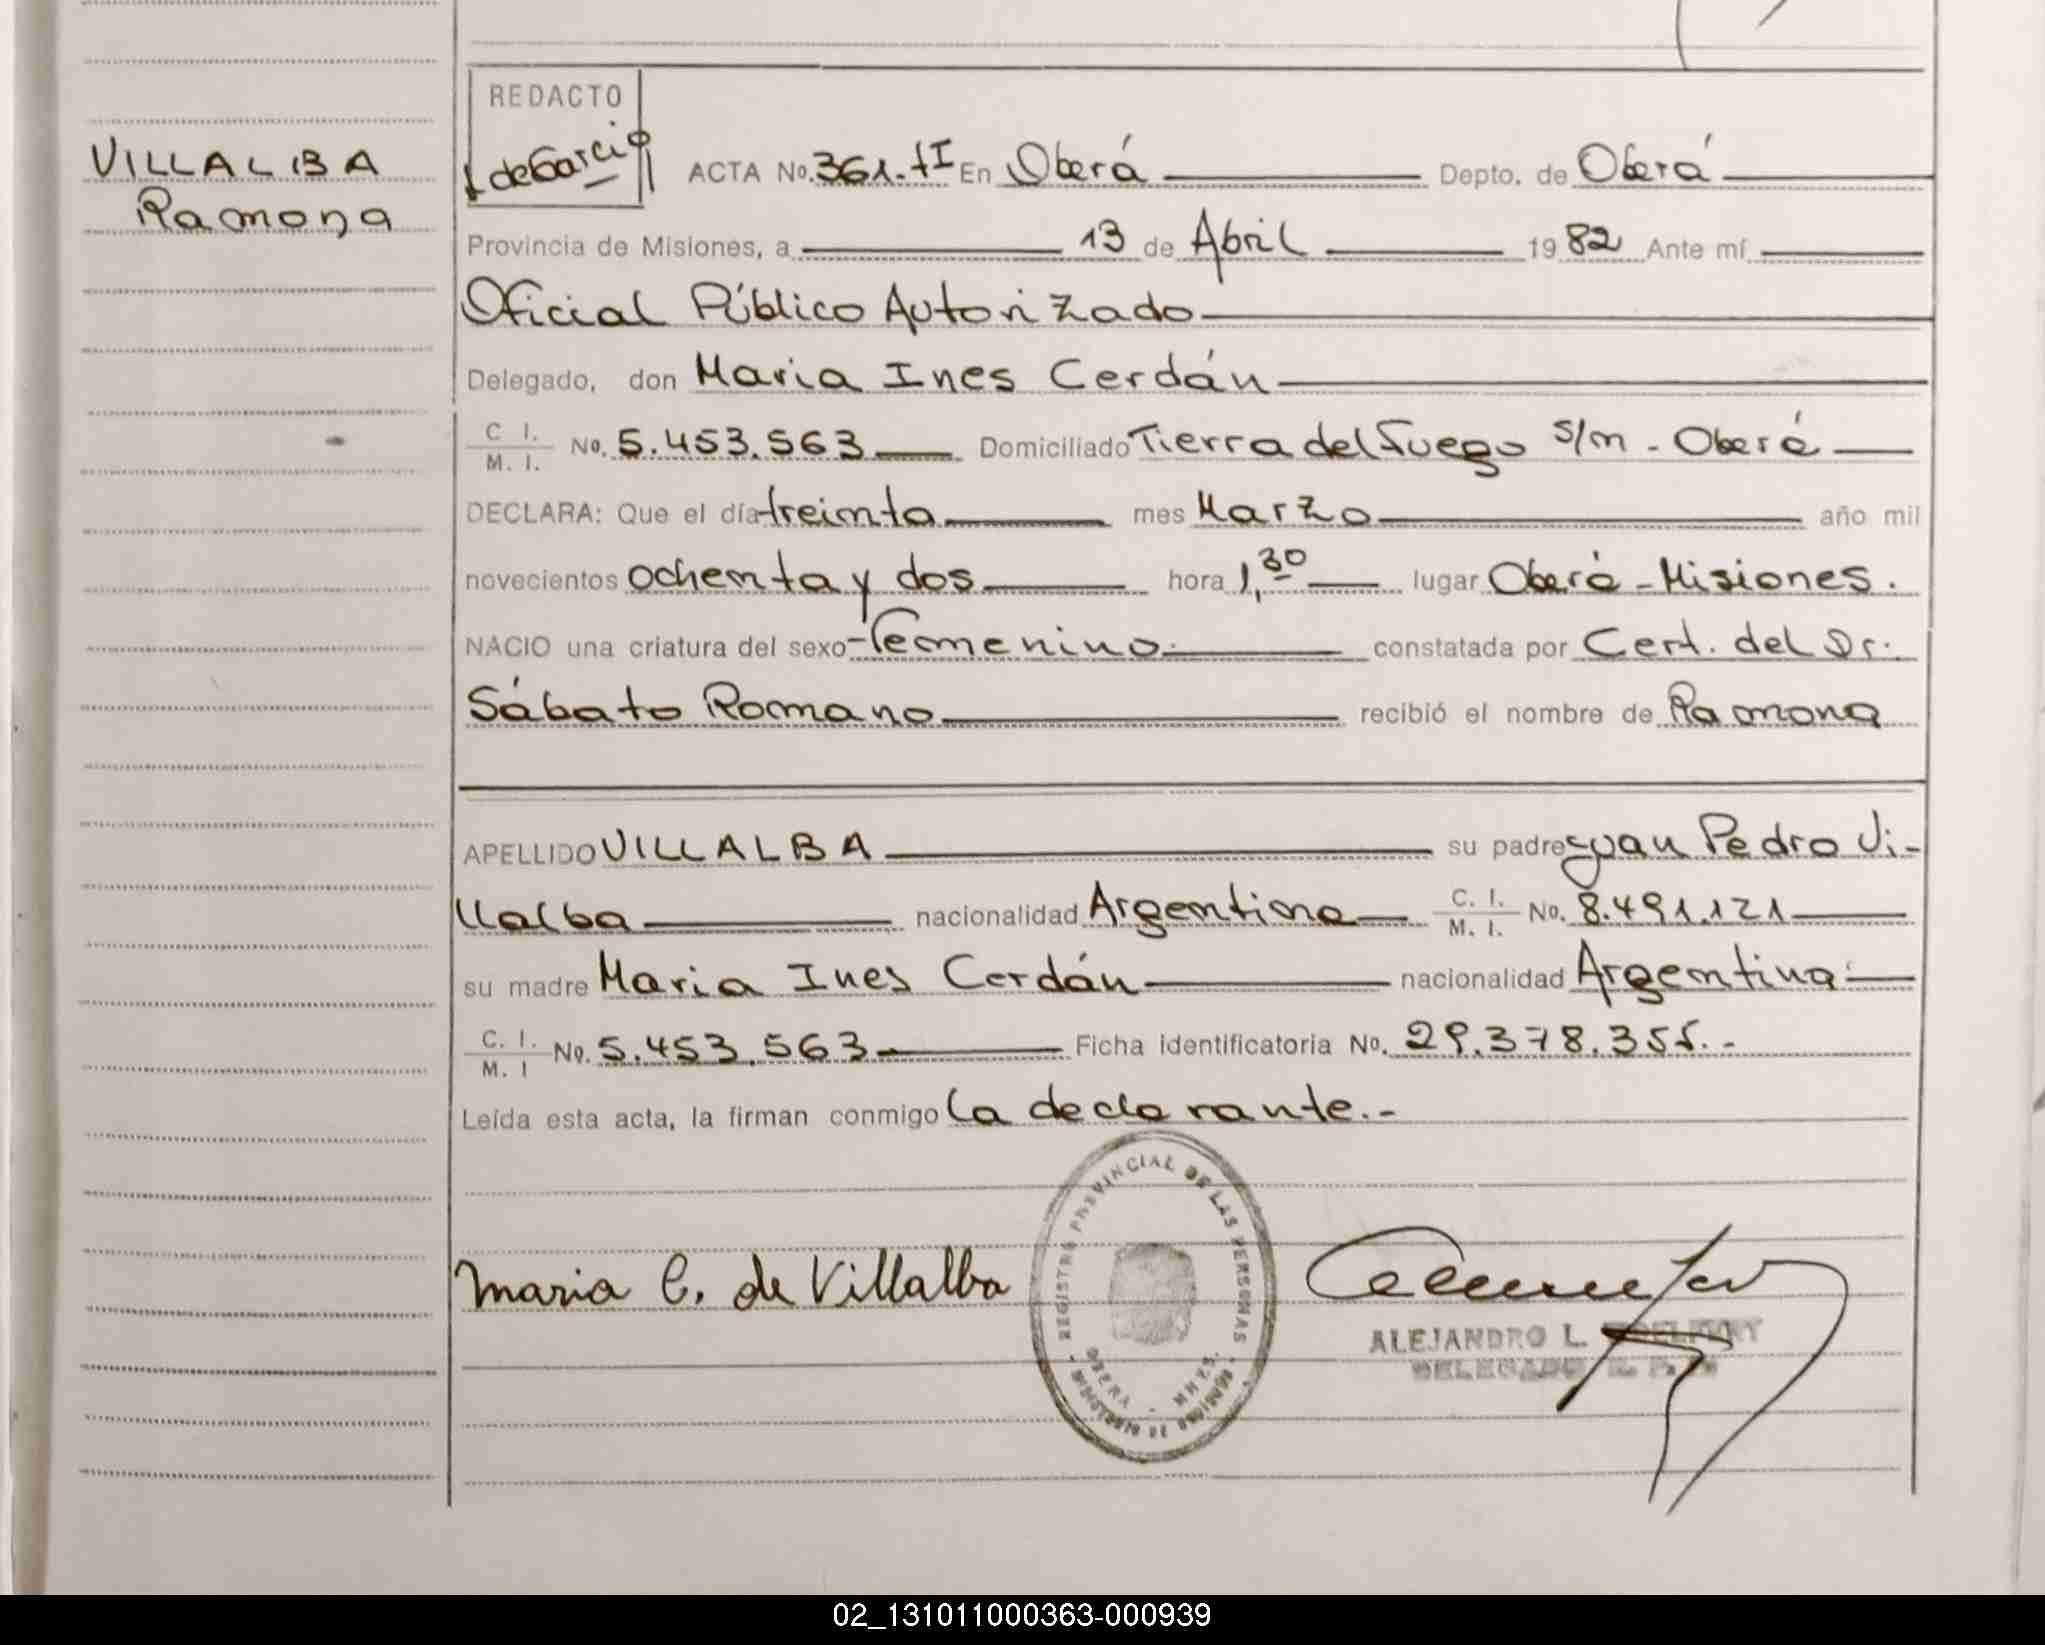 VILLALBA
Ramona
REDACTO
deGarcia
ACTA No. 361. tI En Oberá Depto. de Oberá
Provincia de Misiones, a 13 de Abril 1982 Ante mí
Oficial Público Autorizado
Delegado, don Maria Ines Cerdán
C I. M. I. No. 5.453.563 Domiciliado Tierra del Fuego s/n - Oberá
DECLARA: Que el día treinta mes Marzo año mil
novecientos ochenta y dos hora 1,30 lugar Oberá - Misiones.
NACIO una criatura del sexo femenino. constatada por Cert. del Dr.
Sábato Romano recibió el nombre de Ramona
APELLIDO VILLALBA su padre Juan Pedro Vi-
llalba nacionalidad Argentina C. I. M. I. No. 8.491.121
su madre Maria Ines Cerdán nacionalidad Argentina
C. I. M. I No. 5.453.563 Ficha identificatoria No. 29.378.355.-
Leída esta acta, la firman conmigo la declarante.-
REGISTRO PROVINCIAL DE LAS PERSONAS
OBERA - MNES.
Maria C. de Villalba
ALEJANDRO L.
DELEGADO R. P.
02_131011000363-000939